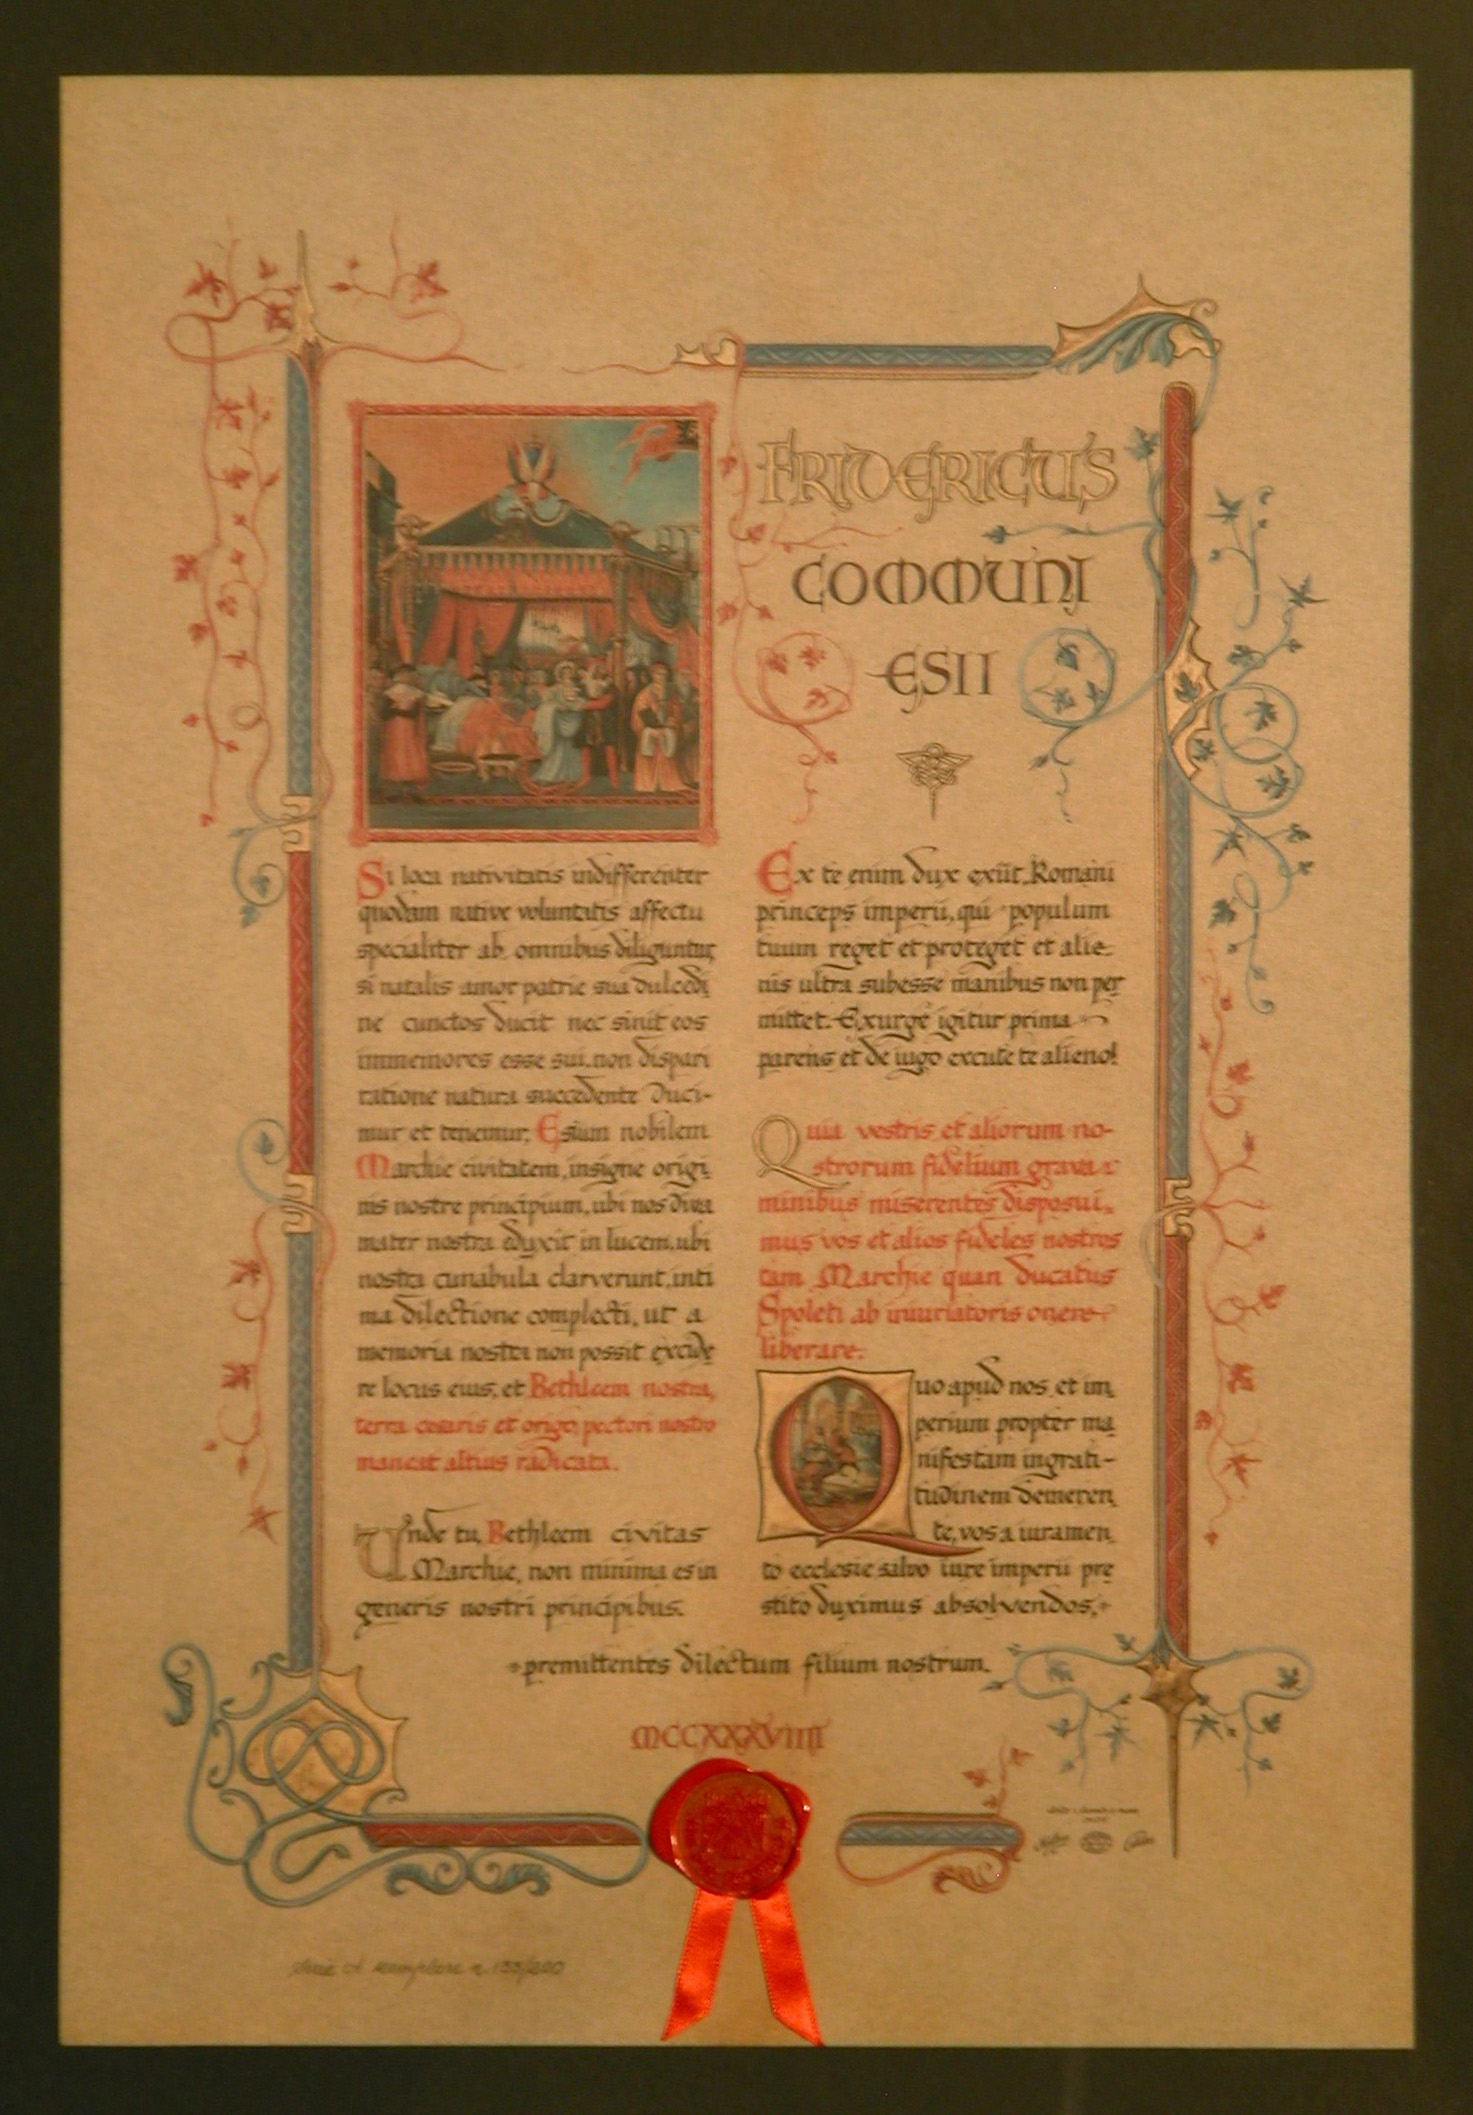 FRIDERICUS
COMMUNI
ESII
Si loca nativitatis indifferenter
quodam native voluntatis affectu
specialiter ab omnibus diliguntur,
si natalis amor patrie sua dulcedi
ne cunctos ducit nec sinit eos
immemores esse sui, non dispari
ratione natura succedente duci-
mur et tenemur, Esium nobilem
Marchie civitatem, insigne origi
nis nostre principium, ubi nos diva
mater nostra eduxit in lucem, ubi
nostra cunabula clarverunt, inti
ma dilectione complecti, ut a
memoria nostra non possit excide
re locus eius, et Bethleem nostra,
terra cesaris et origo, pectori nostro
maneat altius radicata.
Unde tu, Bethleem civitas
Marchie, non minima es in
generis nostri principibus.
Ex te enim dux exiit, Romani
princeps imperii, qui populum
tuum reget et proteget et alie
nis ultra subesse manibus non per
mittet. Exurge igitur prima
parens et de iugo excute te alieno!
Quia vestris et aliorum no-
strorum fidelium grava
minibus miserentes disposui
mus vos et alios fideles nostros
tam Marchie quan ducatus
Spoleti ab iniuriatoris onere
liberare.
Quo apud nos et im
perium propter ma
nifestam ingrati-
tudinem demeren
te, vos a iuramen
to ecclesie salvo iure imperii pre
stito duximus absolvendos,
premittentes dilectum filium nostrum.
MCCXXXVIIII
n. 135/200